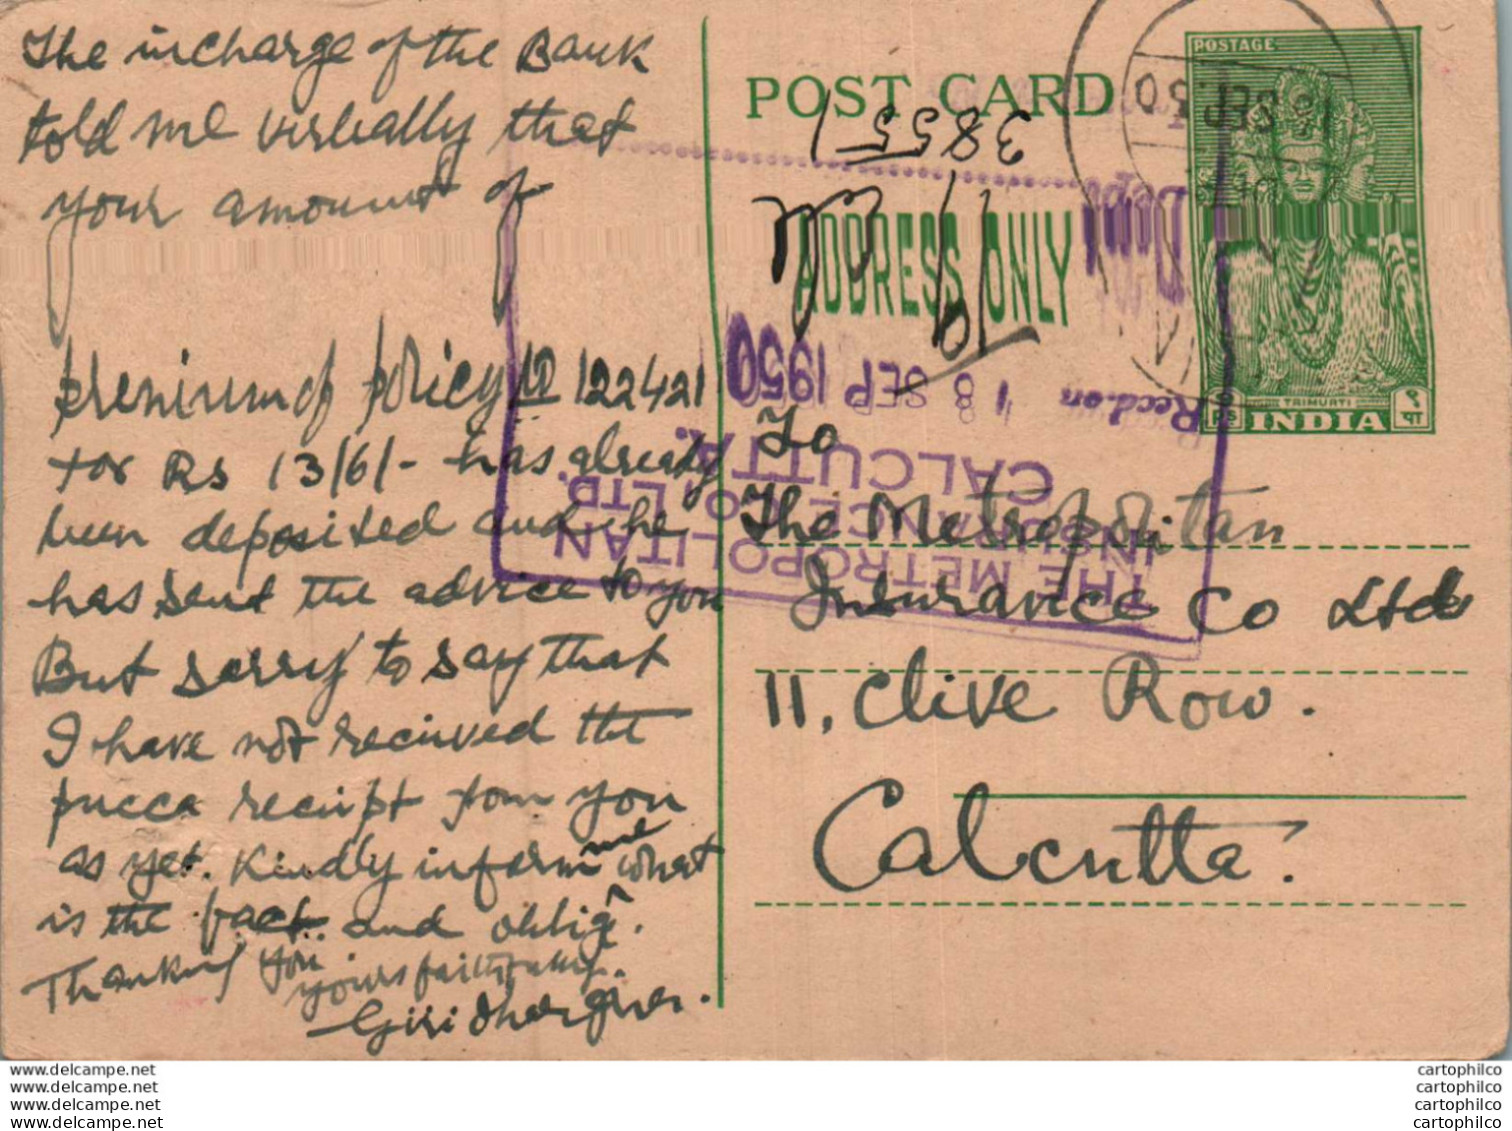 The incharge of the Bank
told me verbally that
your amount of
premium of policy No 122421
for Rs 13/6/- has already
been deposited and he
has sent the advice to you
But sorry to say that
I have not received the
pucca receipt from you
as yet. Kindly inform me what
is the fact and oblige.
Thanking you.
yours faithfully.
POST CARD
ADDRESS ONLY
38551
POSTAGE
TRIMURTI
INDIA
16 SEP. 50
THE METROPOLITAN
INSURANCE CO., LTD.
CALCUTTA.
Recd.on 18 SEP 1950
Dept
To
The Metropolitan
Insurance Co Ltd
11, Clive Row.
Calcutta.
www.delcampe.net
www.delcampe.net
www.delcampe.net
www.delcampe.net
cartophilco
cartophilco
cartophilco
cartophilco